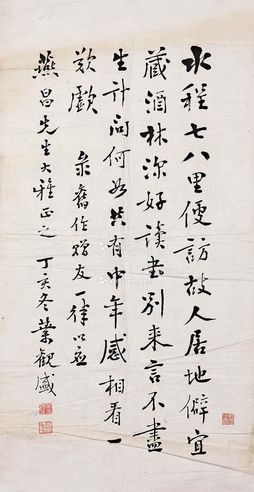 水程七八里便訪故人居地僻宜
藏酒林深好讀書別來言不盡
生計問何如共有中年感相看一
欷歔 錄舊作贈友一律以應
燕昌先生大雅正之 丁亥冬葉觀盛